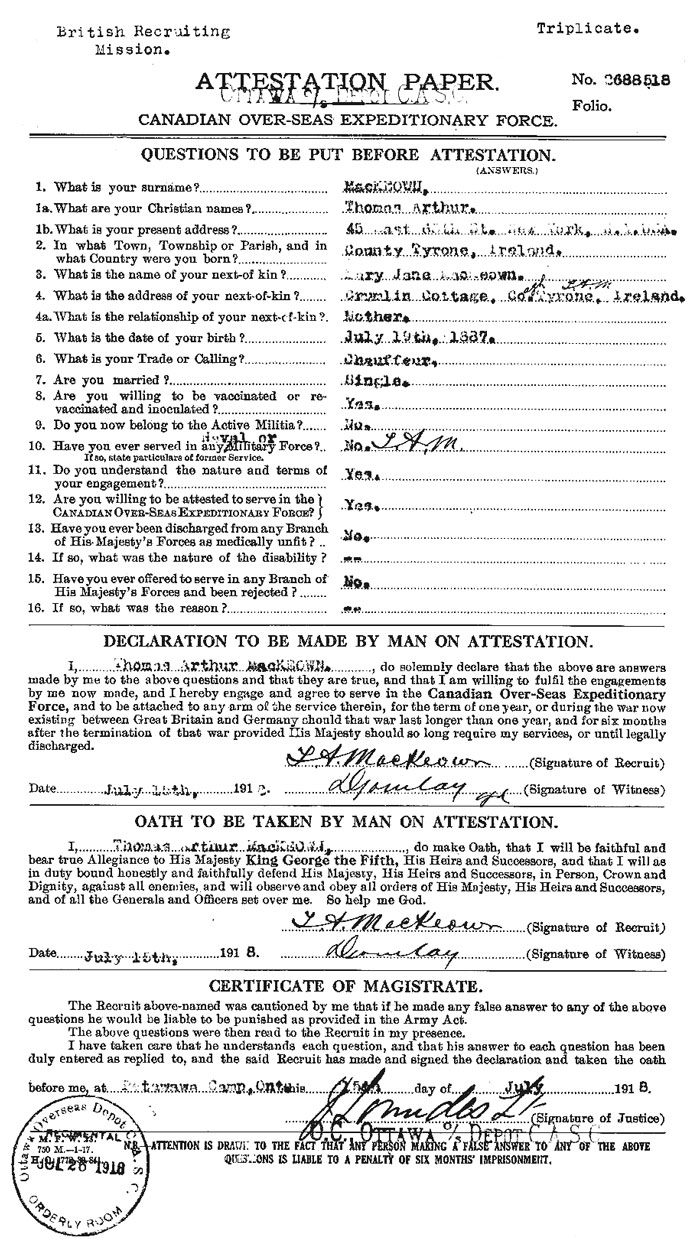 British Recruiting
Mission.
Triplicate.
ATTESTATION PAPER.
No. 2688518
Folio.
OTTAWA o/s DEPOT C.A.S.C.
CANADIAN OVER-SEAS EXPEDITIONARY FORCE.
QUESTIONS TO BE PUT BEFORE ATTESTATION.
(ANSWERS.)
1. What is your surname? MacKEOWN,
1a. What are your Christian names? Thomas Arthur.
1b. What is your present address? 45 East St. New York, U.S.A.
2. In what Town, Township or Parish, and in
what Country were you born? County Tyrone, Ireland.
3. What is the name of your next-of kin? Mary Jane MacKeown.
4. What is the address of your next-of-kin? Crumlin Cottage, Co. Tyrone, Ireland. T.A.M.
4a. What is the relationship of your next-of-kin? Mother.
5. What is the date of your birth? July 19th, 1887.
6. What is your Trade or Calling? Chauffeur.
7. Are you married? Single.
8. Are you willing to be vaccinated or re-
vaccinated and inoculated? Yes.
9. Do you now belong to the Active Militia? No.
Naval or
10. Have you ever served in any Military Force? No. T.A.M.
If so, state particulars of former Service.
11. Do you understand the nature and terms of
your engagement? Yes.
12. Are you willing to be attested to serve in the }
CANADIAN OVER-SEAS EXPEDITIONARY FORCE? } Yes.
13. Have you ever been discharged from any Branch
of His Majesty's Forces as medically unfit? No.
14. If so, what was the nature of the disability? --
15. Have you ever offered to serve in any Branch of
His Majesty's Forces and been rejected? No.
16. If so, what was the reason? --
DECLARATION TO BE MADE BY MAN ON ATTESTATION.
I, Thomas Arthur MacKEOWN., do solemnly declare that the above are answers
made by me to the above questions and that they are true, and that I am willing to fulfil the engagements
by me now made, and I hereby engage and agree to serve in the Canadian Over-Seas Expeditionary
Force, and to be attached to any arm of the service therein, for the term of one year, or during the war now
existing between Great Britain and Germany should that war last longer than one year, and for six months
after the termination of that war provided His Majesty should so long require my services, or until legally
discharged.
T. A. MacKeown (Signature of Recruit)
Date July 15th, 1918. (Signature of Witness)
OATH TO BE TAKEN BY MAN ON ATTESTATION.
I, Thomas Arthur MacKEOWN, do make Oath, that I will be faithful and
bear true Allegiance to His Majesty King George the Fifth, His Heirs and Successors, and that I will as
in duty bound honestly and faithfully defend His Majesty, His Heirs and Successors, in Person, Crown and
Dignity, against all enemies, and will observe and obey all orders of His Majesty, His Heirs and Successors,
and of all the Generals and Officers set over me. So help me God.
T. A. MacKeown (Signature of Recruit)
Date July 15th, 1918. (Signature of Witness)
CERTIFICATE OF MAGISTRATE.
The Recruit above-named was cautioned by me that if he made any false answer to any of the above
questions he would be liable to be punished as provided in the Army Act.
The above questions were then read to the Recruit in my presence.
I have taken care that he understands each question, and that his answer to each question has been
duly entered as replied to, and the said Recruit has made and signed the declaration and taken the oath
before me, at Petawawa Camp, Ont this 15th day of July 1918.
(Signature of Justice)
O.C. OTTAWA o/s DEPOT C.A.S.C.
Ottawa Overseas Depot C.A.S.C.
REGIMENTAL
M. F. W. 23.
750 M.—1-17.
JUL 26 1918
ORDERLY ROOM
ATTENTION IS DRAWN TO THE FACT THAT ANY PERSON MAKING A FALSE ANSWER TO ANY OF THE ABOVE
QUESTIONS IS LIABLE TO A PENALTY OF SIX MONTHS' IMPRISONMENT.